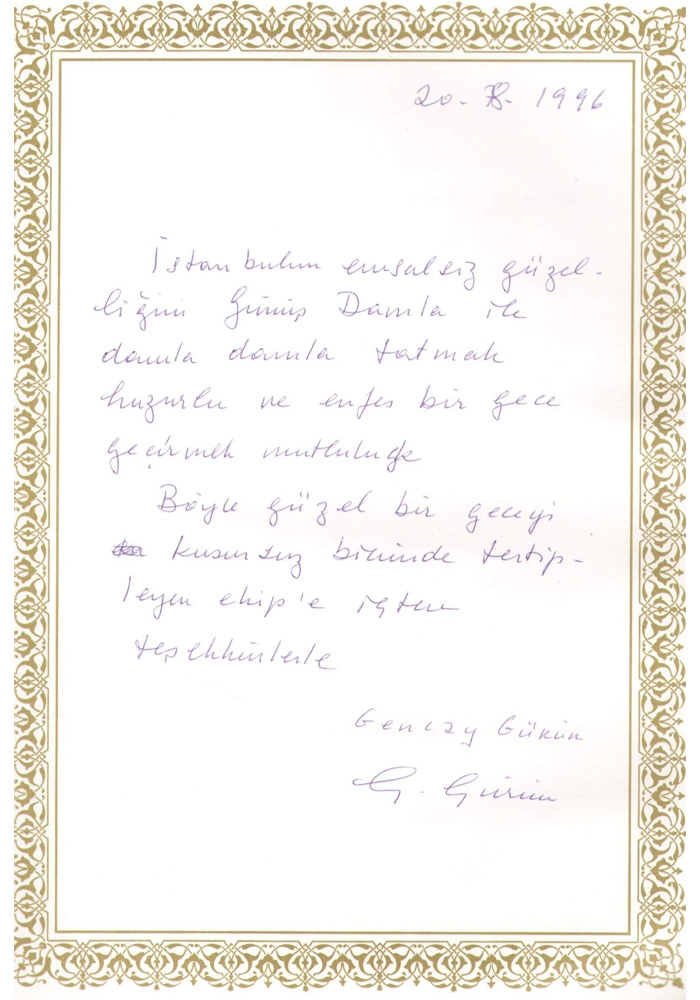 20. 8. 1996
İstanbulun emsalsiz güzel-
liğini Gümüş Damla ile
damla damla tatmak
huzurlu ve enfes bir gece
geçirmek mutluluğu
Böyle güzel bir geceyi
kusursuz biçimde tertip-
leyen ekip'e içten
teşekkürlerle
Gencay Gürün
G. Gürün